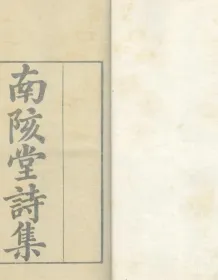 南陔堂詩集